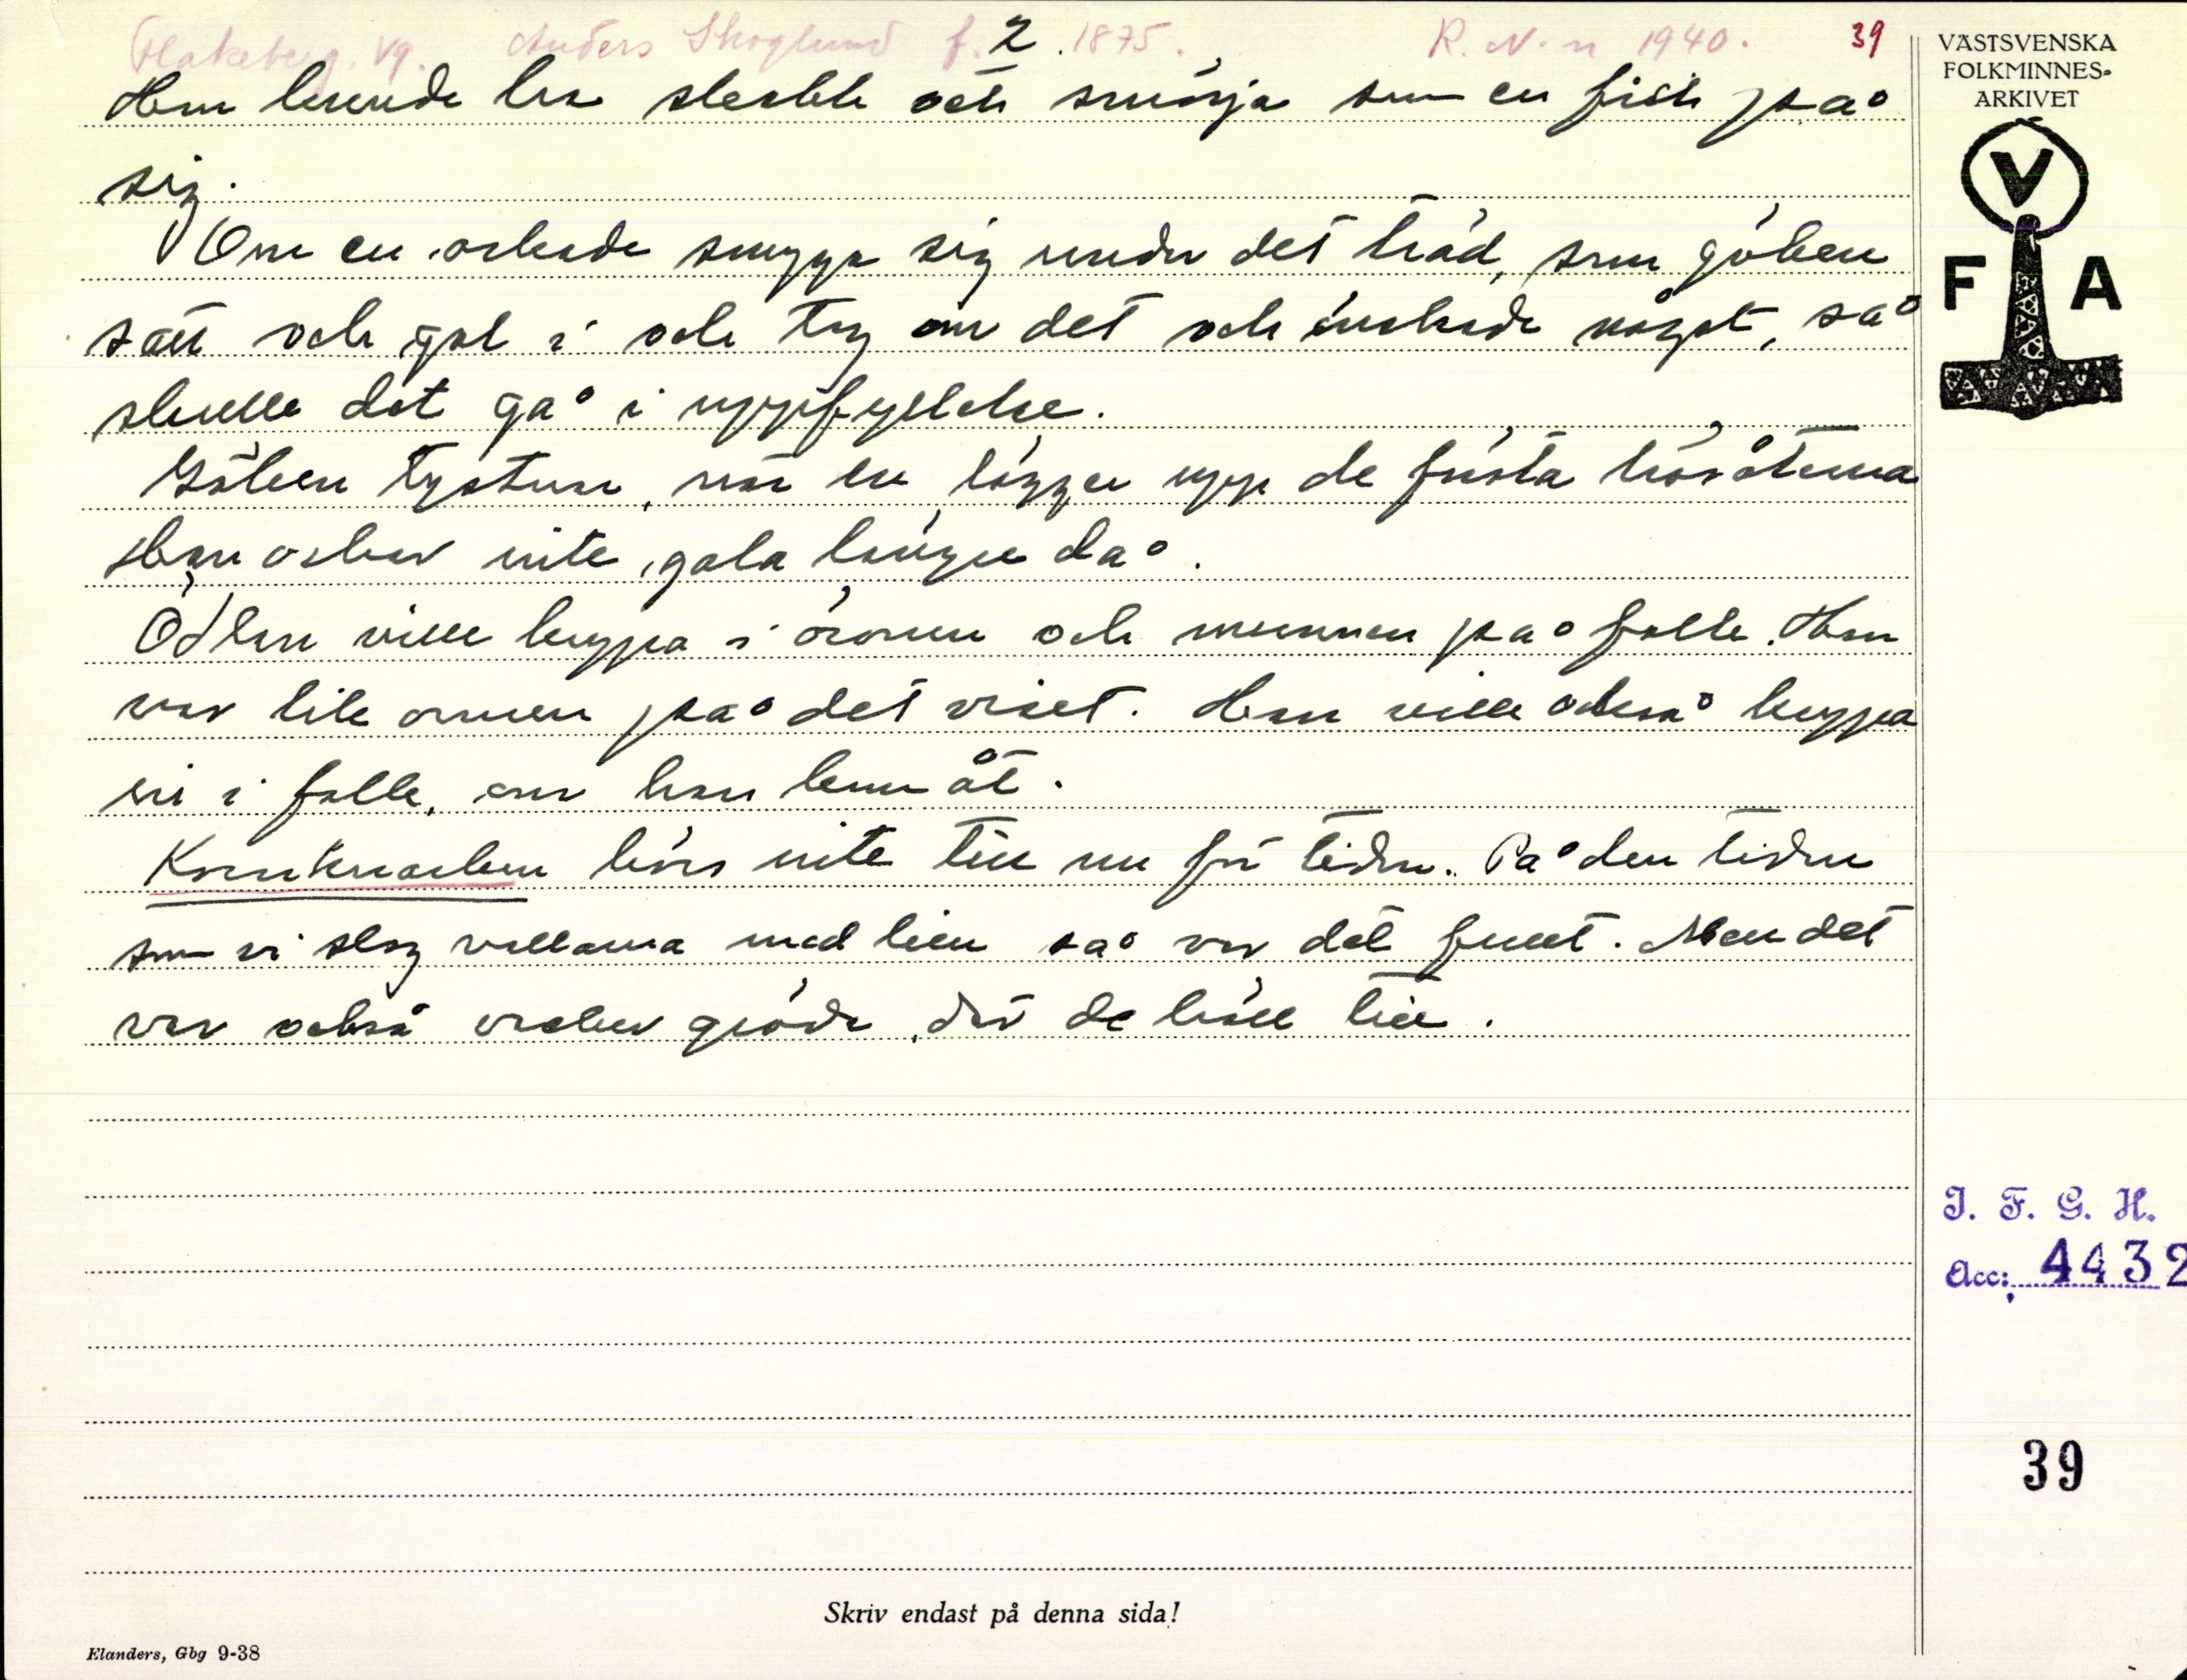 Flakeberg. Vg. Anders Skoglund f. 2 . 1875. R. N-n 1940. 39
Han kunde ha skabb och smörja som en fick på
sig.
Om en orkade smyga sig under det träd, som göken
satt och gol i och tog om det och önskade något, så
skulle det gå i uppfyllelse.
Göken tystnar, när en lägger upp de första hösåtarna
Han orkar inte gala längre då.
Ödlan ville hoppa i öronen och munnen på folk. Han
var lik ormen på det viset. Han ville också hoppa
in i folk, om han kom åt.
Kornknarken hörs inte till nu för tiden. På den tiden
som vi slog vallarna med lien så var det fullt. Men det
var också vacker gröda, där de höll till.
VÄSTSVENSKA
FOLKMINNES-
ARKIVET
V
F A
I. F. G. H.
Acc: 4432
39
Skriv endast på denna sida!
Elanders, Gbg 9-38